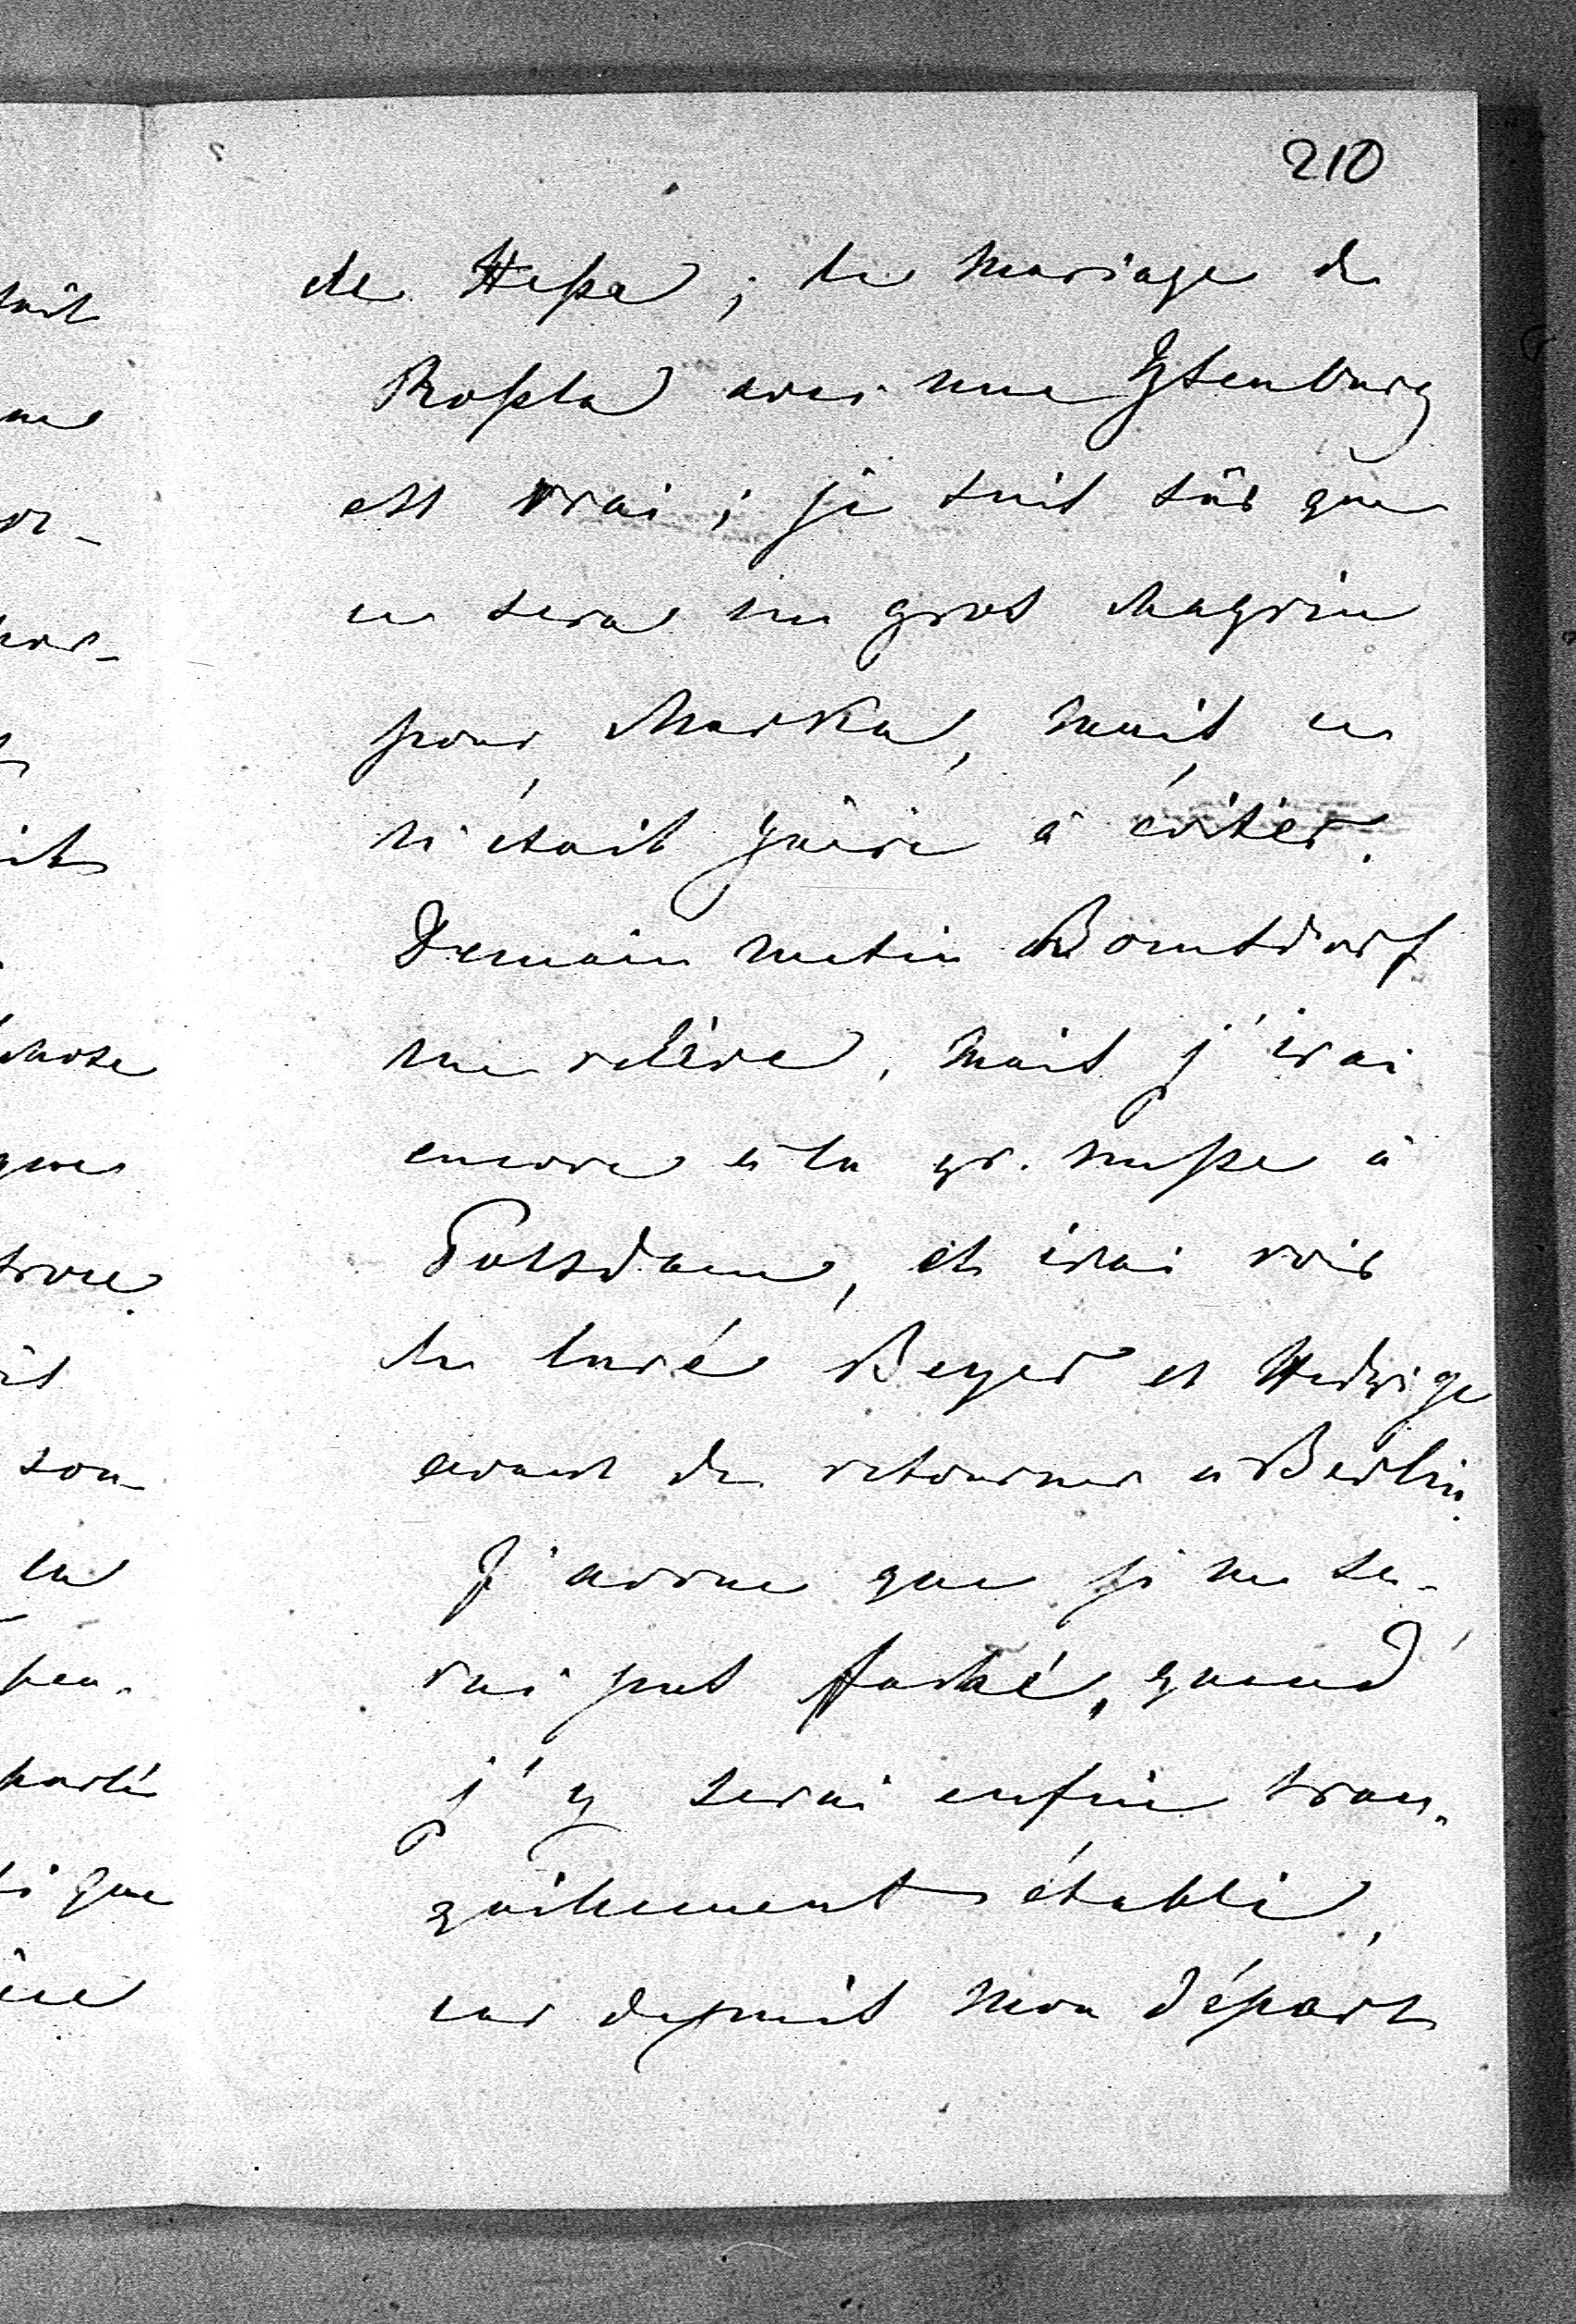 210
de Hesse; le mariage de
Rossla avec une Ysenburg
est vrai; je suis sûr que
ce sera un gros chagrin
pour Marka, mais ce
n'était guère à éviter.
Demain matin Bomsdorf
me relève, mais j'irai
encore à la gr. messe à
Potsdam, et irai voir
le curé Beyer et Hedwige
avant de retourner à Berlin.
J'avoue que je ne se-
rai pas faché, quand
j'y serai enfin tran-
quillement établi,
car depuis mon départ